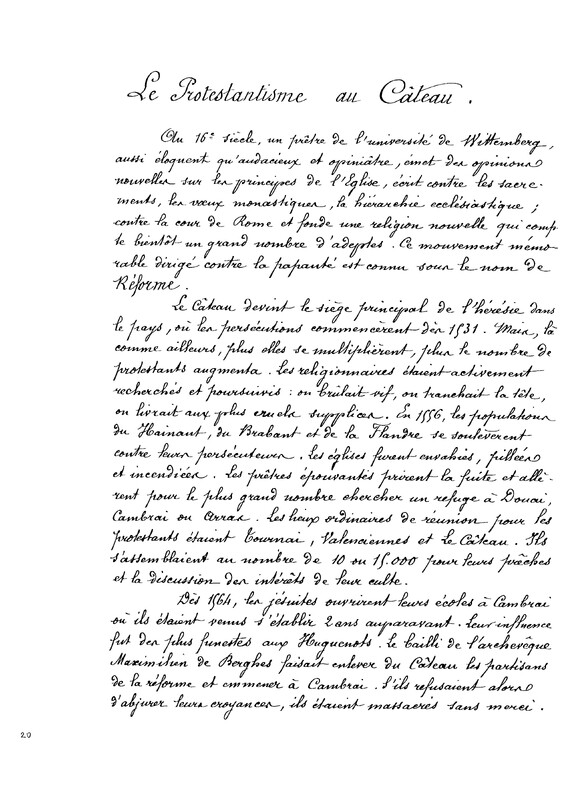 Le Protestantisme au Câteau.
Au 16e siècle, un prêtre de l'université de Wittemberg,
aussi éloquent qu'audacieux et opiniâtre, émet des opinions
nouvelles sur les principes de l'Eglise, écrit contre les sacre-
ments, les vœux monastiques, la hiérarchie ecclésiastique ;
contre la cour de Rome et fonde une religion nouvelle qui comp
te bientôt un grand nombre d'adeptes. Ce mouvement mémo-
rable dirigé contre la papauté est connu sous le nom de
Réforme.
Le Câteau devint le siège principal de l'hérésie dans
le pays, où les persécutions commencèrent dès 1531. Mais, là
comme ailleurs, plus elles se multiplièrent, plus le nombre de
protestants augmenta. Les religionnaires étaient activement
recherchés et poursuivis : on brûlait vif, on tranchait la tête,
on livrait aux plus cruels supplices. En 1556, les populations
du Hainaut, du Brabant et de la Flandre se soulevèrent
contre leurs persécuteurs. Les églises furent envahies, pillées
et incendiées. Les prêtres épouvantés prirent la fuite et allè-
rent pour le plus grand nombre chercher un refuge à Douai,
Cambrai ou Arras. Les lieux ordinaires de réunion pour les
protestants étaient Tournai, Valenciennes et Le Câteau. Ils
s'assemblaient au nombre de 10 ou 15.000 pour leurs prêches
et la discussion des intérêts de leur culte.
Dès 1564, les jésuites ouvrirent leurs écoles à Cambrai
où ils étaient venus s'établir 2 ans auparavant. Leur influence
fut des plus funestes aux Huguenots. Le bailli de l'archevêque
Maximilien de Berghes faisait enlever du Câteau les partisans
de la réforme et emmener à Cambrai. S'ils refusaient alors
d'abjurer leurs croyances, ils étaient massacrés sans merci.
20